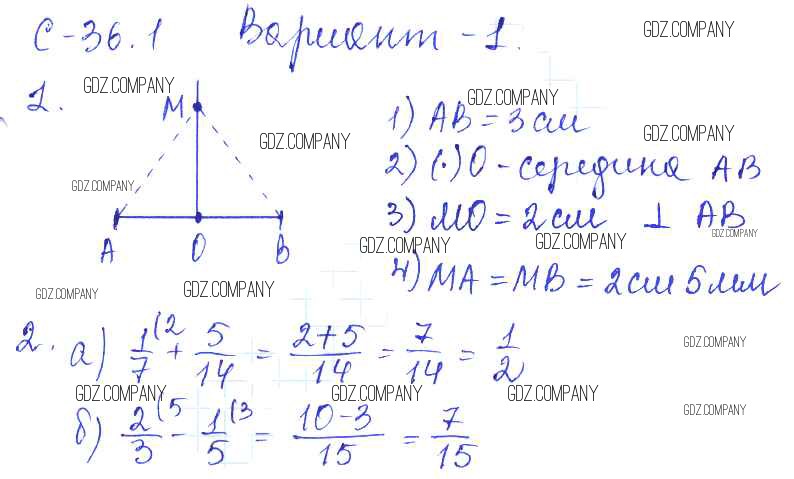 С-36.1 Вариант-1.
GDZ.COMPANY
1.
GDZ.COMPANY
M
GDZ.COMPANY
GDZ.COMPANY
A O B
1) AB = 3 см
GDZ.COMPANY
GDZ.COMPANY
2) (·) O - середина AB
3) MO = 2 см ⊥ AB
GDZ.COMPANY
GDZ.COMPANY
GDZ.COMPANY
4) MA = MB = 2 см 5 мм
GDZ.COMPANY
GDZ.COMPANY
2. а) 1/7 (2 + 5/14 = 2+5/14 = 7/14 = 1/2
GDZ.COMPANY
GDZ.COMPANY
GDZ.COMPANY
GDZ.COMPANY
б) 2/3 (5 - 1/5 (3 = 10-3/15 = 7/15
GDZ.COMPANY